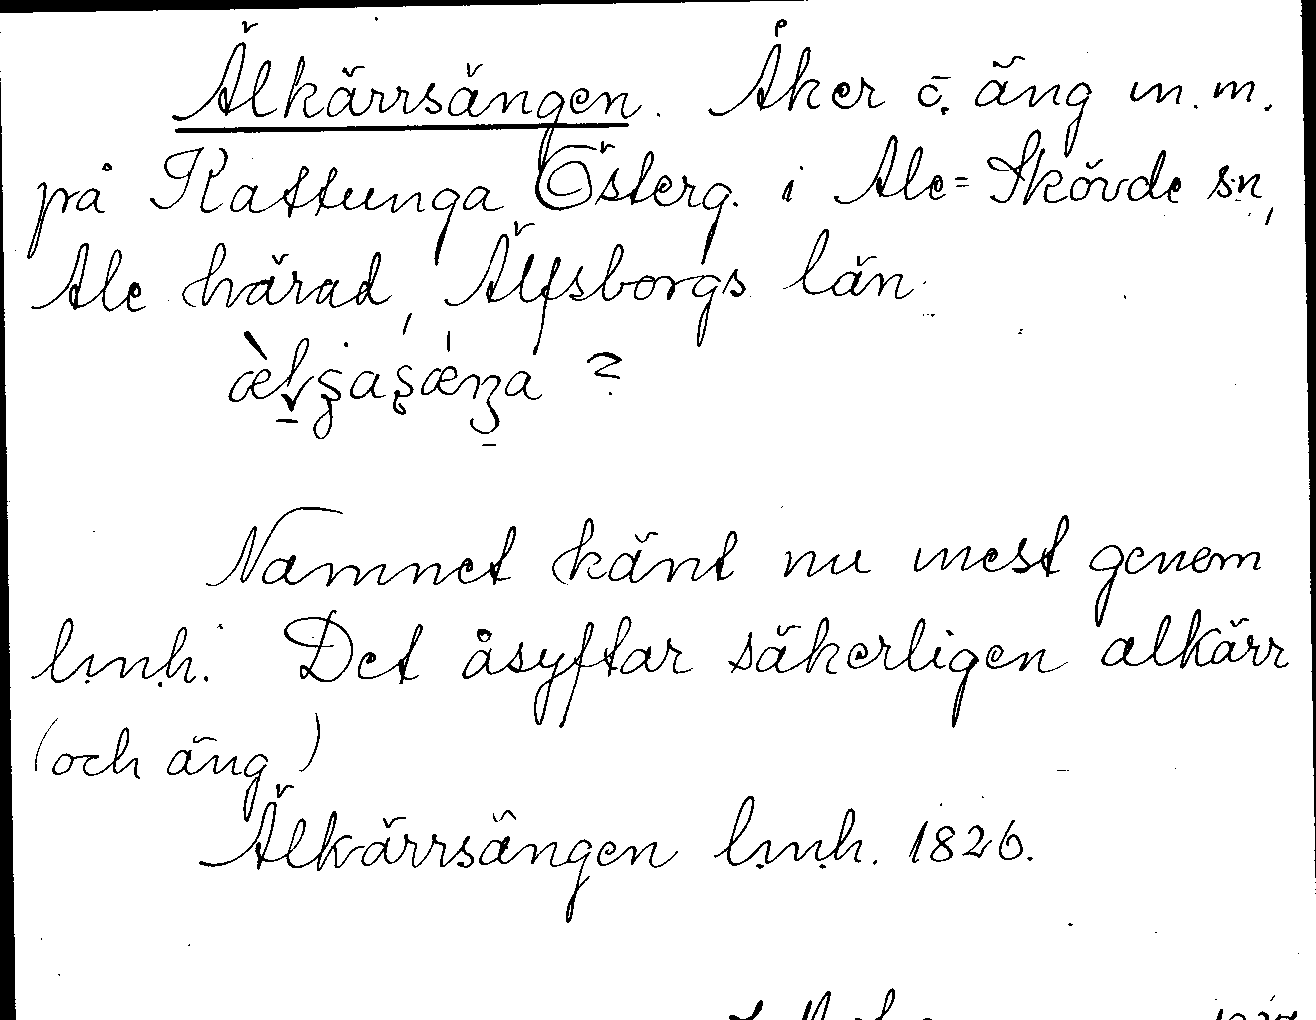 Älkärrsängen. Åker o. äng m.m.
på Kattunga Österg. i Ale-Skövde sn,
Ale härad, Älfsborgs län.
?
Namnet känt nu mest genom
lmh. Det åsyftar säkerligen alkärr
(och äng)
Älkärrsängen lmh. 1826.